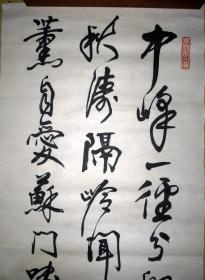 中峰一徑分
秋濤隔嶺聞
薰自愛蘇門